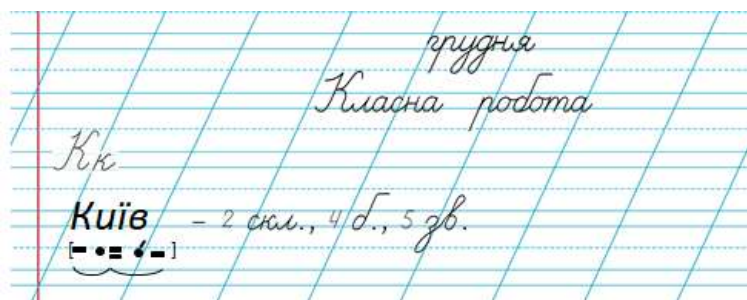 грудня
Класна робота
К к
Київ – 2 скл., 4 б., 5 зв.
[– •= •́ –]